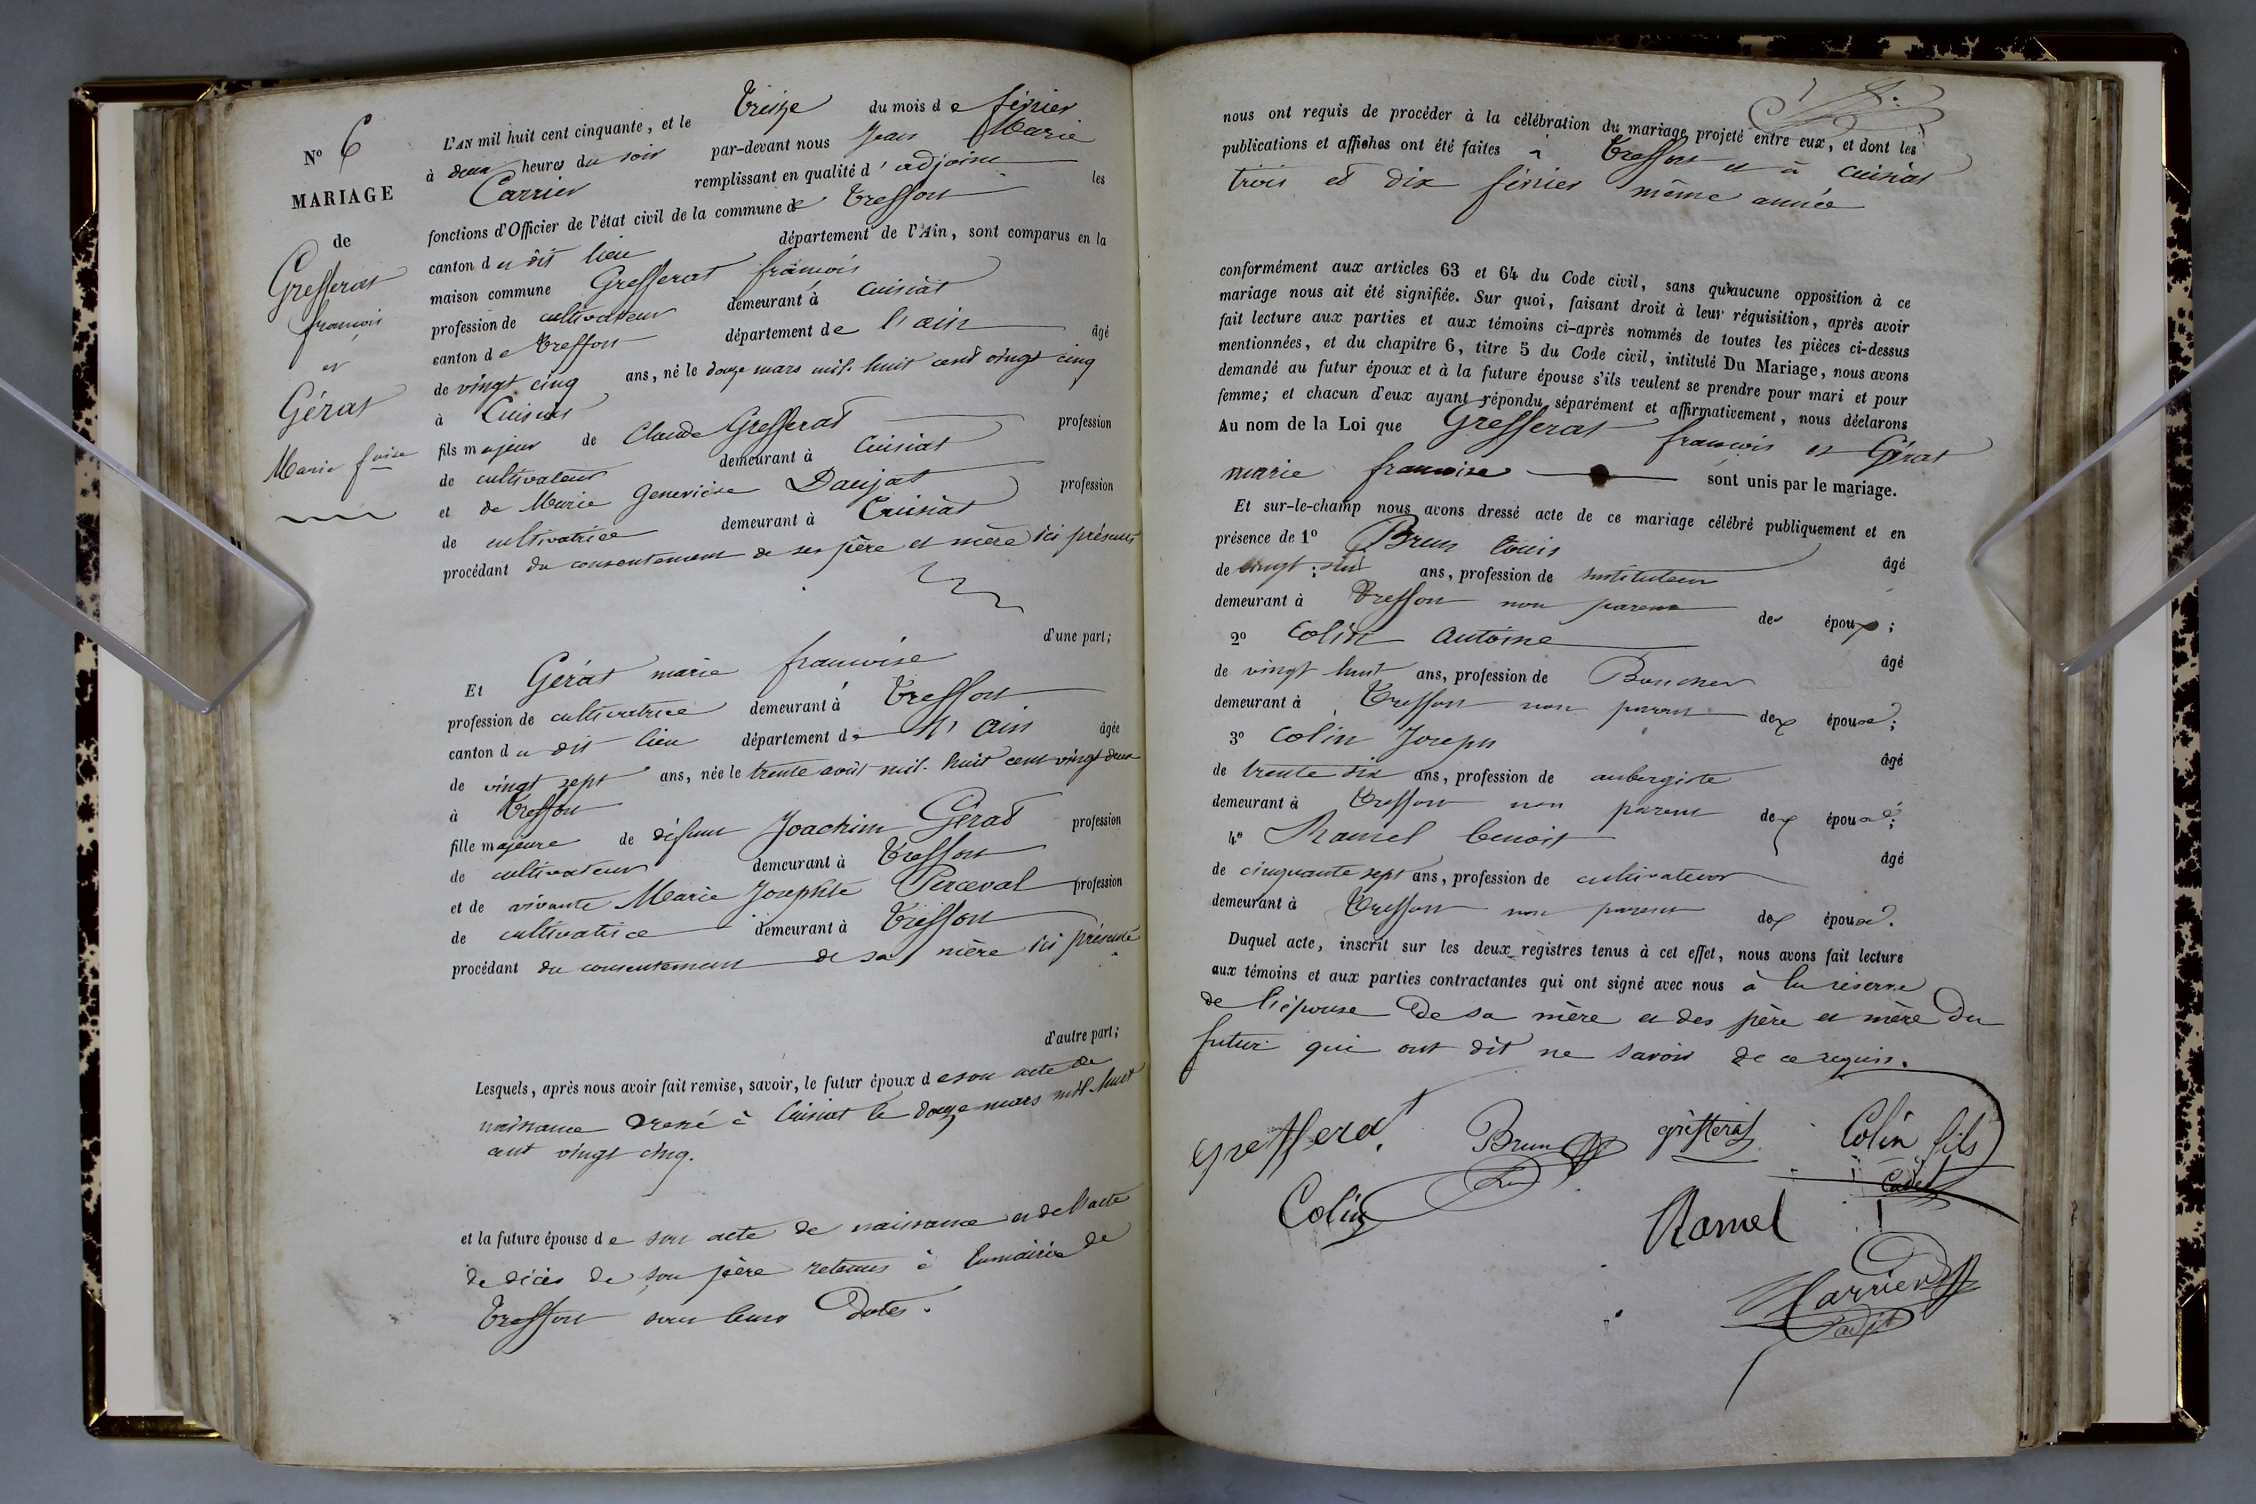 N° 6
MARIAGE
de
Grefferat
francois
et
Gérat
Marie foise
L'AN mil huit cent cinquante, et le treize du mois de février
à deux heures du soir par-devant nous Jean Marie
Carrier remplissant en qualité d'adjoint les
fonctions d'Officier de l'état civil de la commune de Treffort
canton du dit lieu département de l'Ain, sont comparus en la
maison commune Grefferat francois
profession de cultivateur demeurant à Cuisiat
canton de Treffort département de l'ain âgé
de vingt cinq ans, né le douze mars mil huit cent vingt cinq
à Cuisiat
fils majeur de Claude Grefferat profession
de cultivateur demeurant à Cuisiat
et de Marie Geneviève Daujat profession
de cultivatrice demeurant à Cuisiat
procédant du consentement de ses père et mère ici présents
d'une part;
Et Gérat marie francoise
profession de cultivatrice demeurant à Treffort
canton du dit lieu département de l'ain âgée
de vingt sept ans, née le trente août mil huit cent vingt deux
à Treffort
fille majeure de défunt Joachim Gérat profession
de cultivateur demeurant à Treffort
et de vivante Marie Josephte Perceval profession
de cultivatrice demeurant à Treffort
procédant du consentement de sa mère ici présente
d'autre part;
Lesquels, après nous avoir fait remise, savoir, le futur époux de son acte de
naissance dressé à Cuisiat le douze mars mil huit
cent vingt cinq.
et la future épouse de son acte de naissance et de l'acte
de décès de son père retenus à la mairie de
Treffort sous leurs dates.
nous ont requis de procéder à la célébration du mariage projeté entre eux, et dont les
publications et affiches ont été faites à Treffort et à Cuisiat
trois et dix février même année
conformément aux articles 63 et 64 du Code civil, sans qu'aucune opposition à ce
mariage nous ait été signifiée. Sur quoi, faisant droit à leur réquisition, après avoir
fait lecture aux parties et aux témoins ci-après nommés de toutes les pièces ci-dessus
mentionnées, et du chapitre 6, titre 5 du Code civil, intitulé Du Mariage, nous avons
demandé au futur époux et à la future épouse s'ils veulent se prendre pour mari et pour
femme; et chacun d'eux ayant répondu séparément et affirmativement, nous déclarons
Au nom de la Loi que Grefferat francois et Gérat
marie francoise sont unis par le mariage.
Et sur-le-champ nous avons dressé acte de ce mariage célébré publiquement et en
présence de 1° Brun Louis âgé
de vingt six ans, profession de instituteur
demeurant à Treffort non parent des époux;
2° Colin Antoine âgé
de vingt huit ans, profession de Boucher
demeurant à Treffort non parent des époux;
3° Colin Joseph âgé
de trente six ans, profession de aubergiste
demeurant à Treffort non parent des époux;
4° Ramel benoit âgé
de cinquante sept ans, profession de cultivateur
demeurant à Treffort non parent des époux.
Duquel acte, inscrit sur les deux registres tenus à cet effet, nous avons fait lecture
aux témoins et aux parties contractantes qui ont signé avec nous à la réserve
de l'épouse de sa mère et des père et mère du
futur qui ont dit ne savoir de ce requis.
grefferat Brun grifferat Colin fils
cadet
Colin Ramel
Carrier
adjt